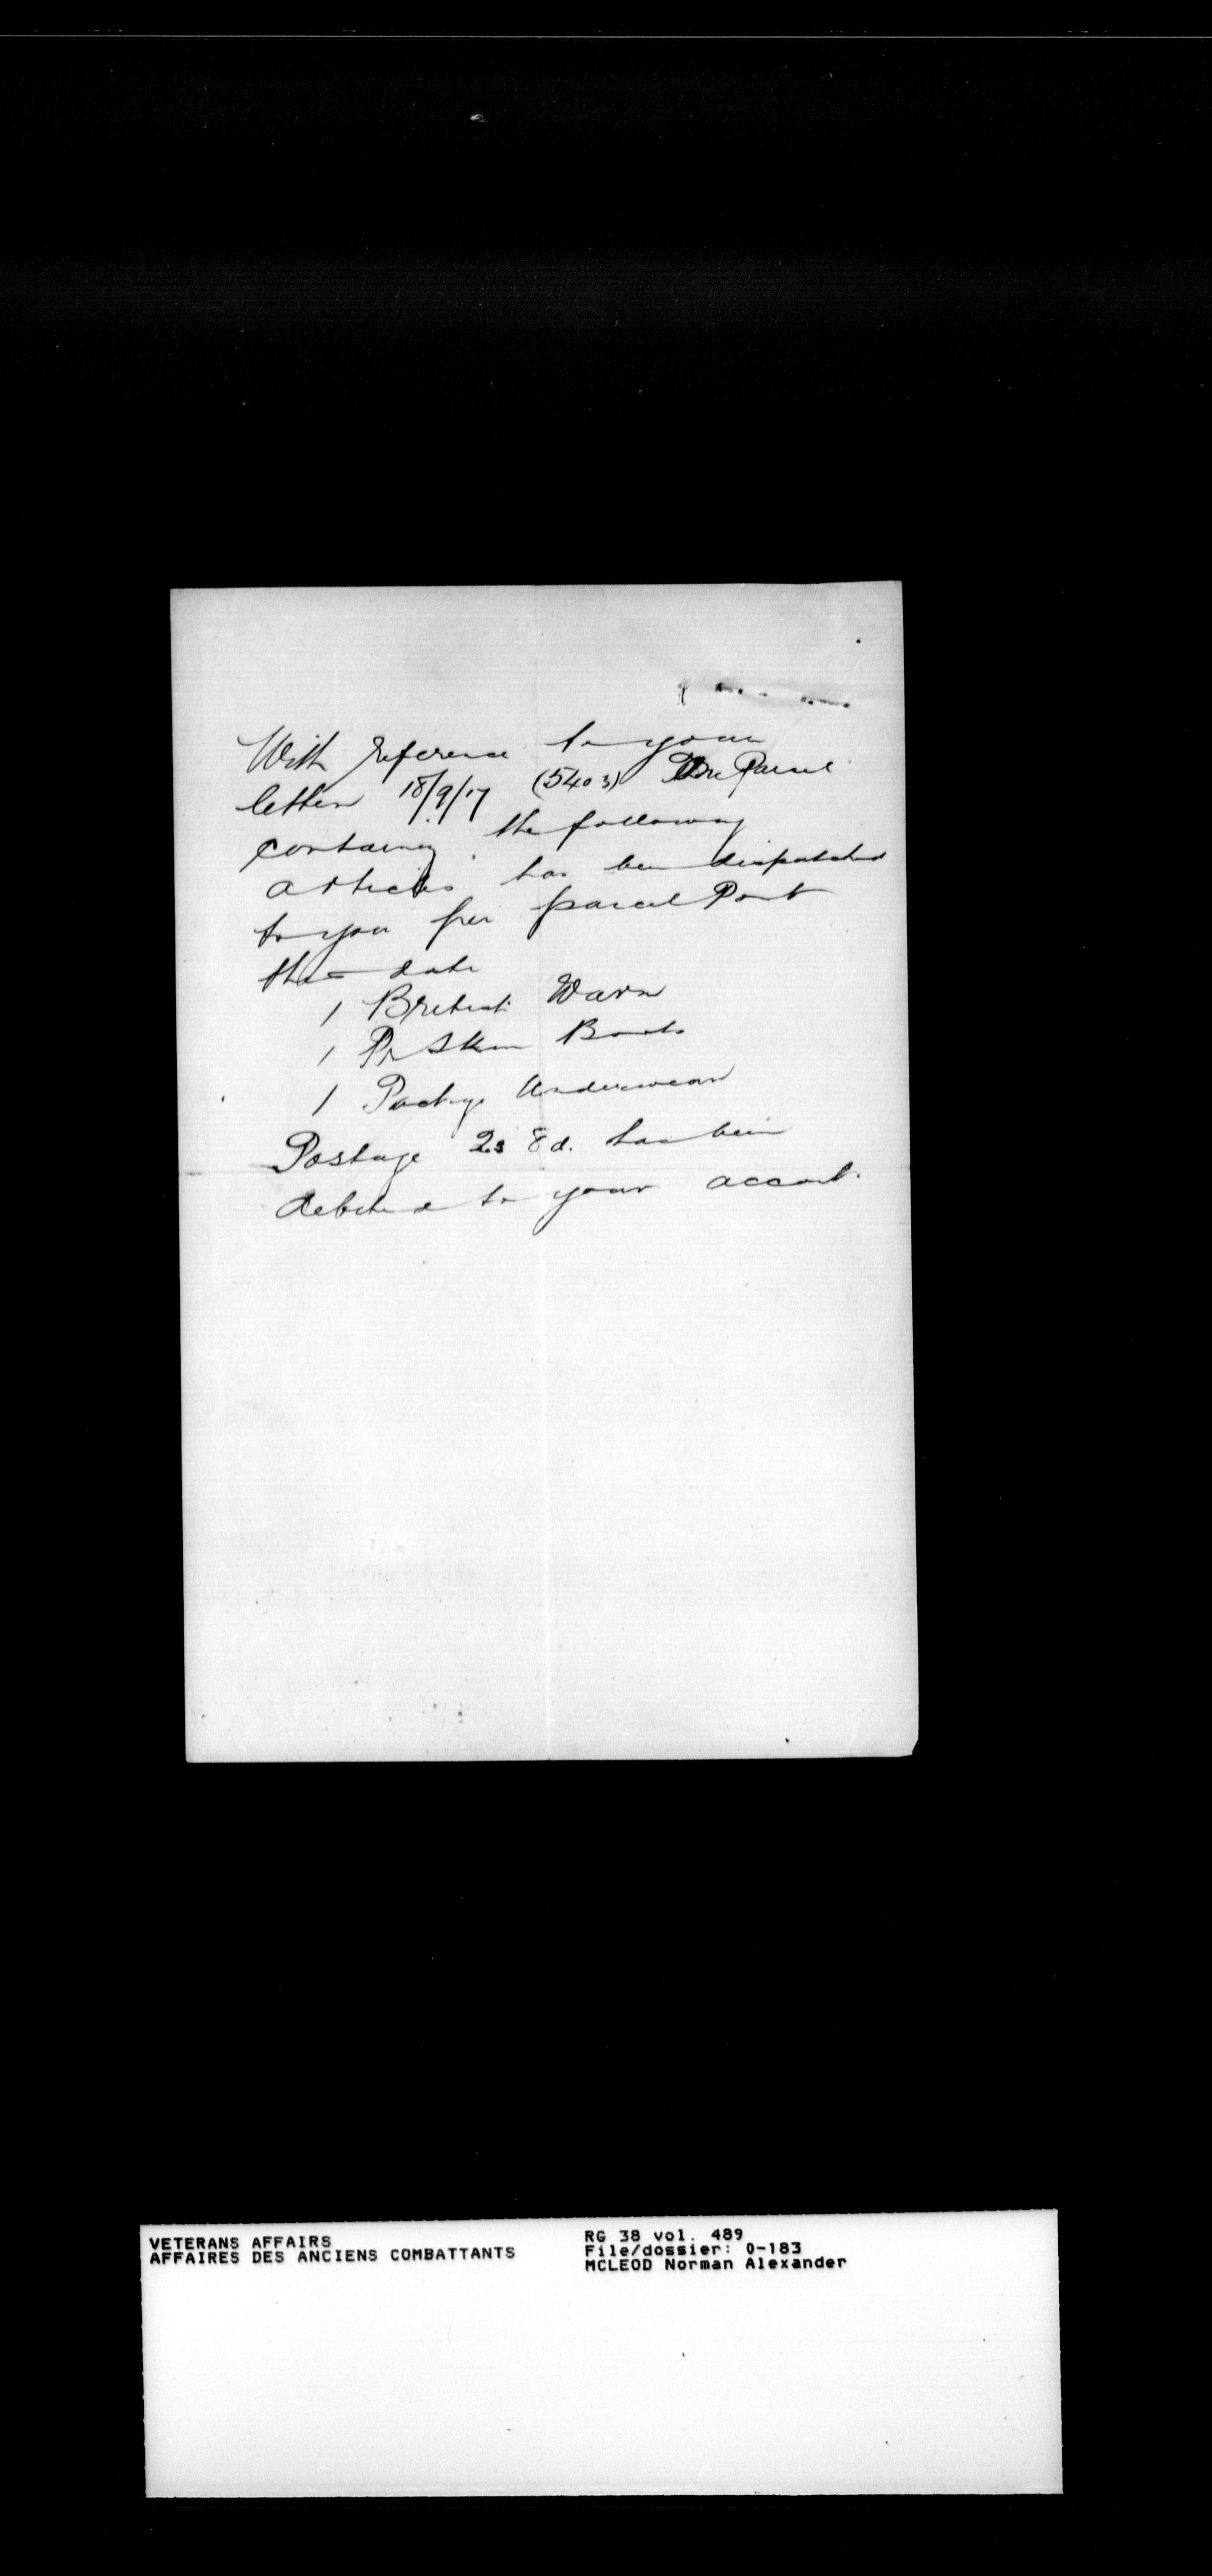 With reference to your
letter 18/9/17 (5403) One Parcel
containing the following
articles has been dispatched
to you per parcel Post
this date
1 British Warm
1 Pr Boots
1 Package Underwear
Postage 2s 8d. has been
debited to your account.
VETERANS AFFAIRS
AFFAIRES DES ANCIENS COMBATTANTS
RG 38 vol. 489
File/dossier: 0-183
MCLEOD Norman Alexander